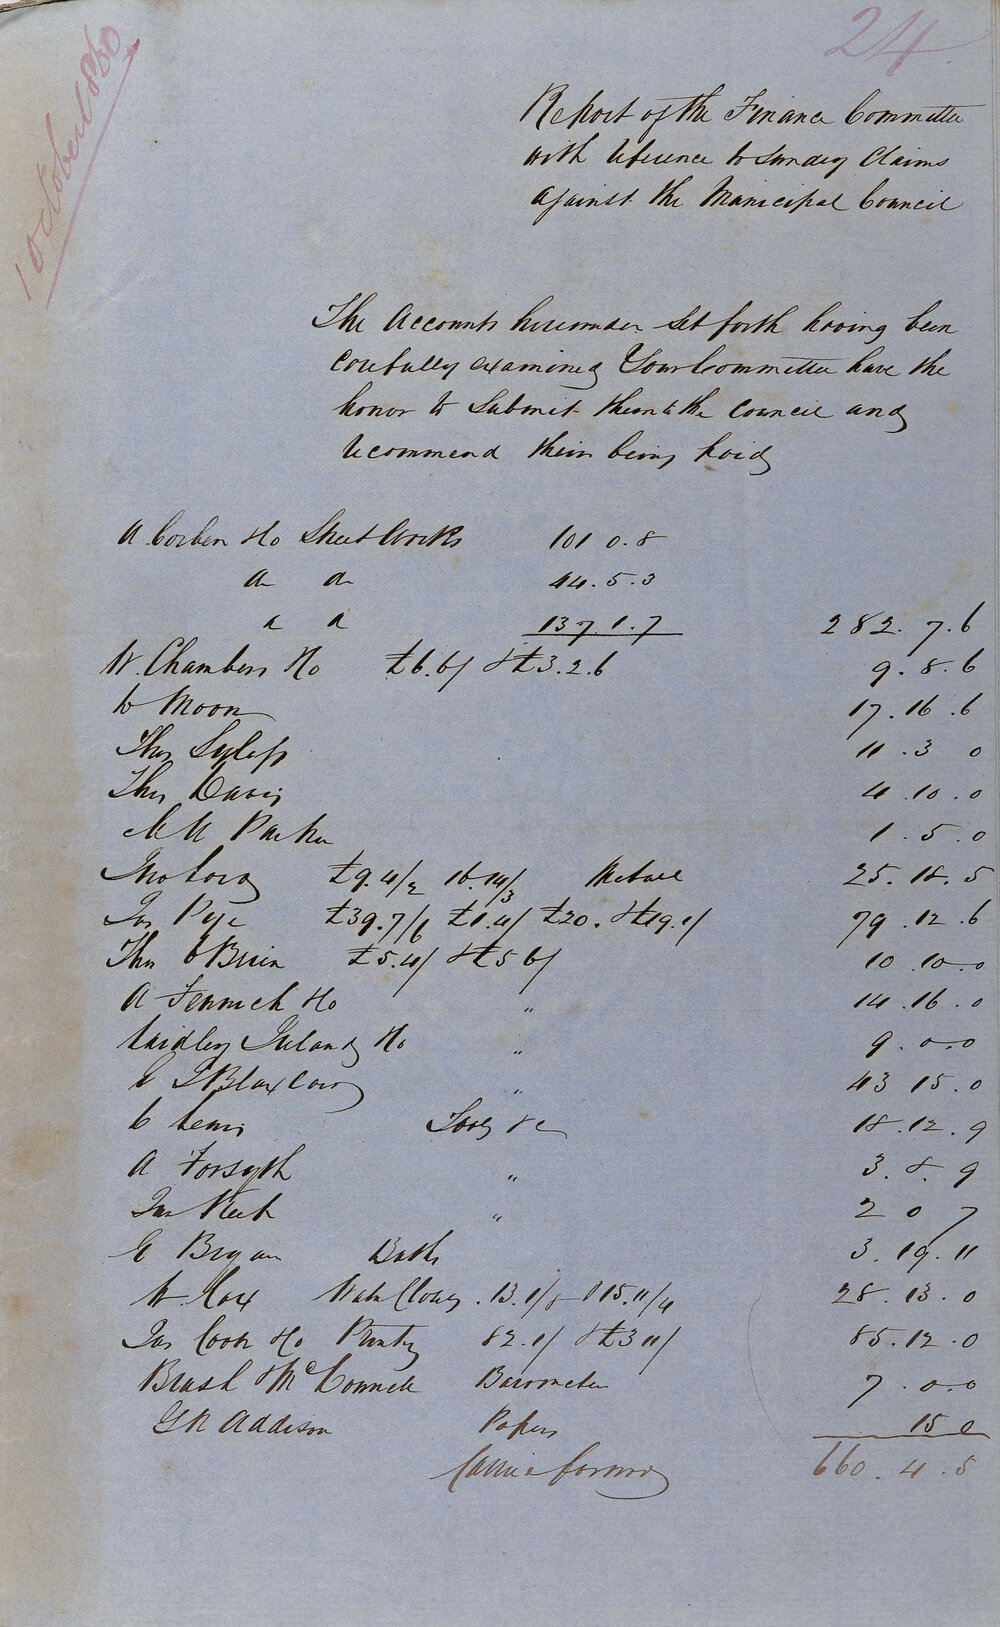 24
10 October 1860
Report of the Finance Committee
with reference to Sundry Claims
against the Municipal Council
The Accounts hereunder set forth having been
carefully examined Your Committee have the
honor to Submit them to the Council and
recommend their being paid
A. Corben &Co Street Works 101 0.8
do do 44.5.3
do do 137.1.7 282.7.6
W. Chambers &Co £6.6/ & £3.2.6 9.8.6
C Moon 17.16.6
Thos 11.3 0
Thos Davis 4.10.0
M Parker 1.5.0
Jno £9.4/2 16.14/3 Metal 25.18.5
Jas Pye £39.7/6 £1.4/ £20. & £19.1/ 79.12.6
Thos O'Brien £5.4/ & £5 6/ 10.10.0
A Fenwick &Co " 14.16.0
Laidley Ireland &Co " 9.0.0
E T Blaxland " 43 15.0
C Lewis Tools &c 18.12.9
A Forsyth " 3.8.9
Jas " 2 0 7
E Bryan Baths 3.19.11
W. Cox Water Closets .13.1/8 & 15.11/4 28.13.0
Jas Cook &Co Printg 82.1/ & £3 11/ 85.12.0
Brush & McDonnell Barometer 7.0.0
G R Addison Papers 15 0
Carrie forward 660.4.5